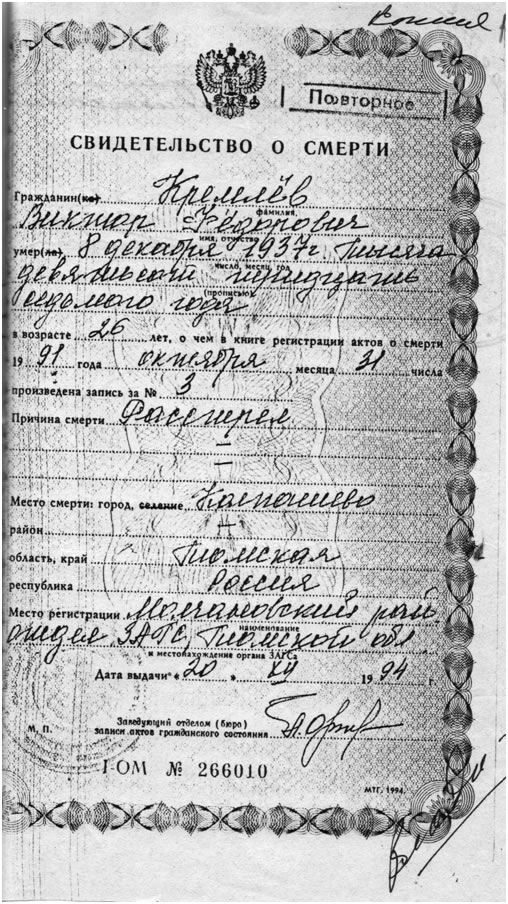 Копия
Повторное
СВИДЕТЕЛЬСТВО О СМЕРТИ
Гражданин(ка) Кремлёв
фамилия,
Виктор Фёдорович
имя, отчество
умер(ла) 8 декабря 1937г. Тысяча
число, месяц, год
девятьсот тридцать
(прописью)
седьмого года
в возрасте 26 лет, о чем в книге регистрации актов о смерти
19 91 года октября месяца 31 числа
произведена запись за № 3
Причина смерти Расстрел
—
—
Место смерти: город, селение Колпашево
район —
область, край Томская
республика Россия
Место регистрации Молчановский рай
наименование
отдел ЗАГС, Томской обл.
и местонахождение органа ЗАГСа
Дата выдачи « 20 » XII 19 94 г.
М. П.
Заведующий отделом (бюро)
записи актов гражданского состояния
I-ОМ № 266010
МТГ, 1994.